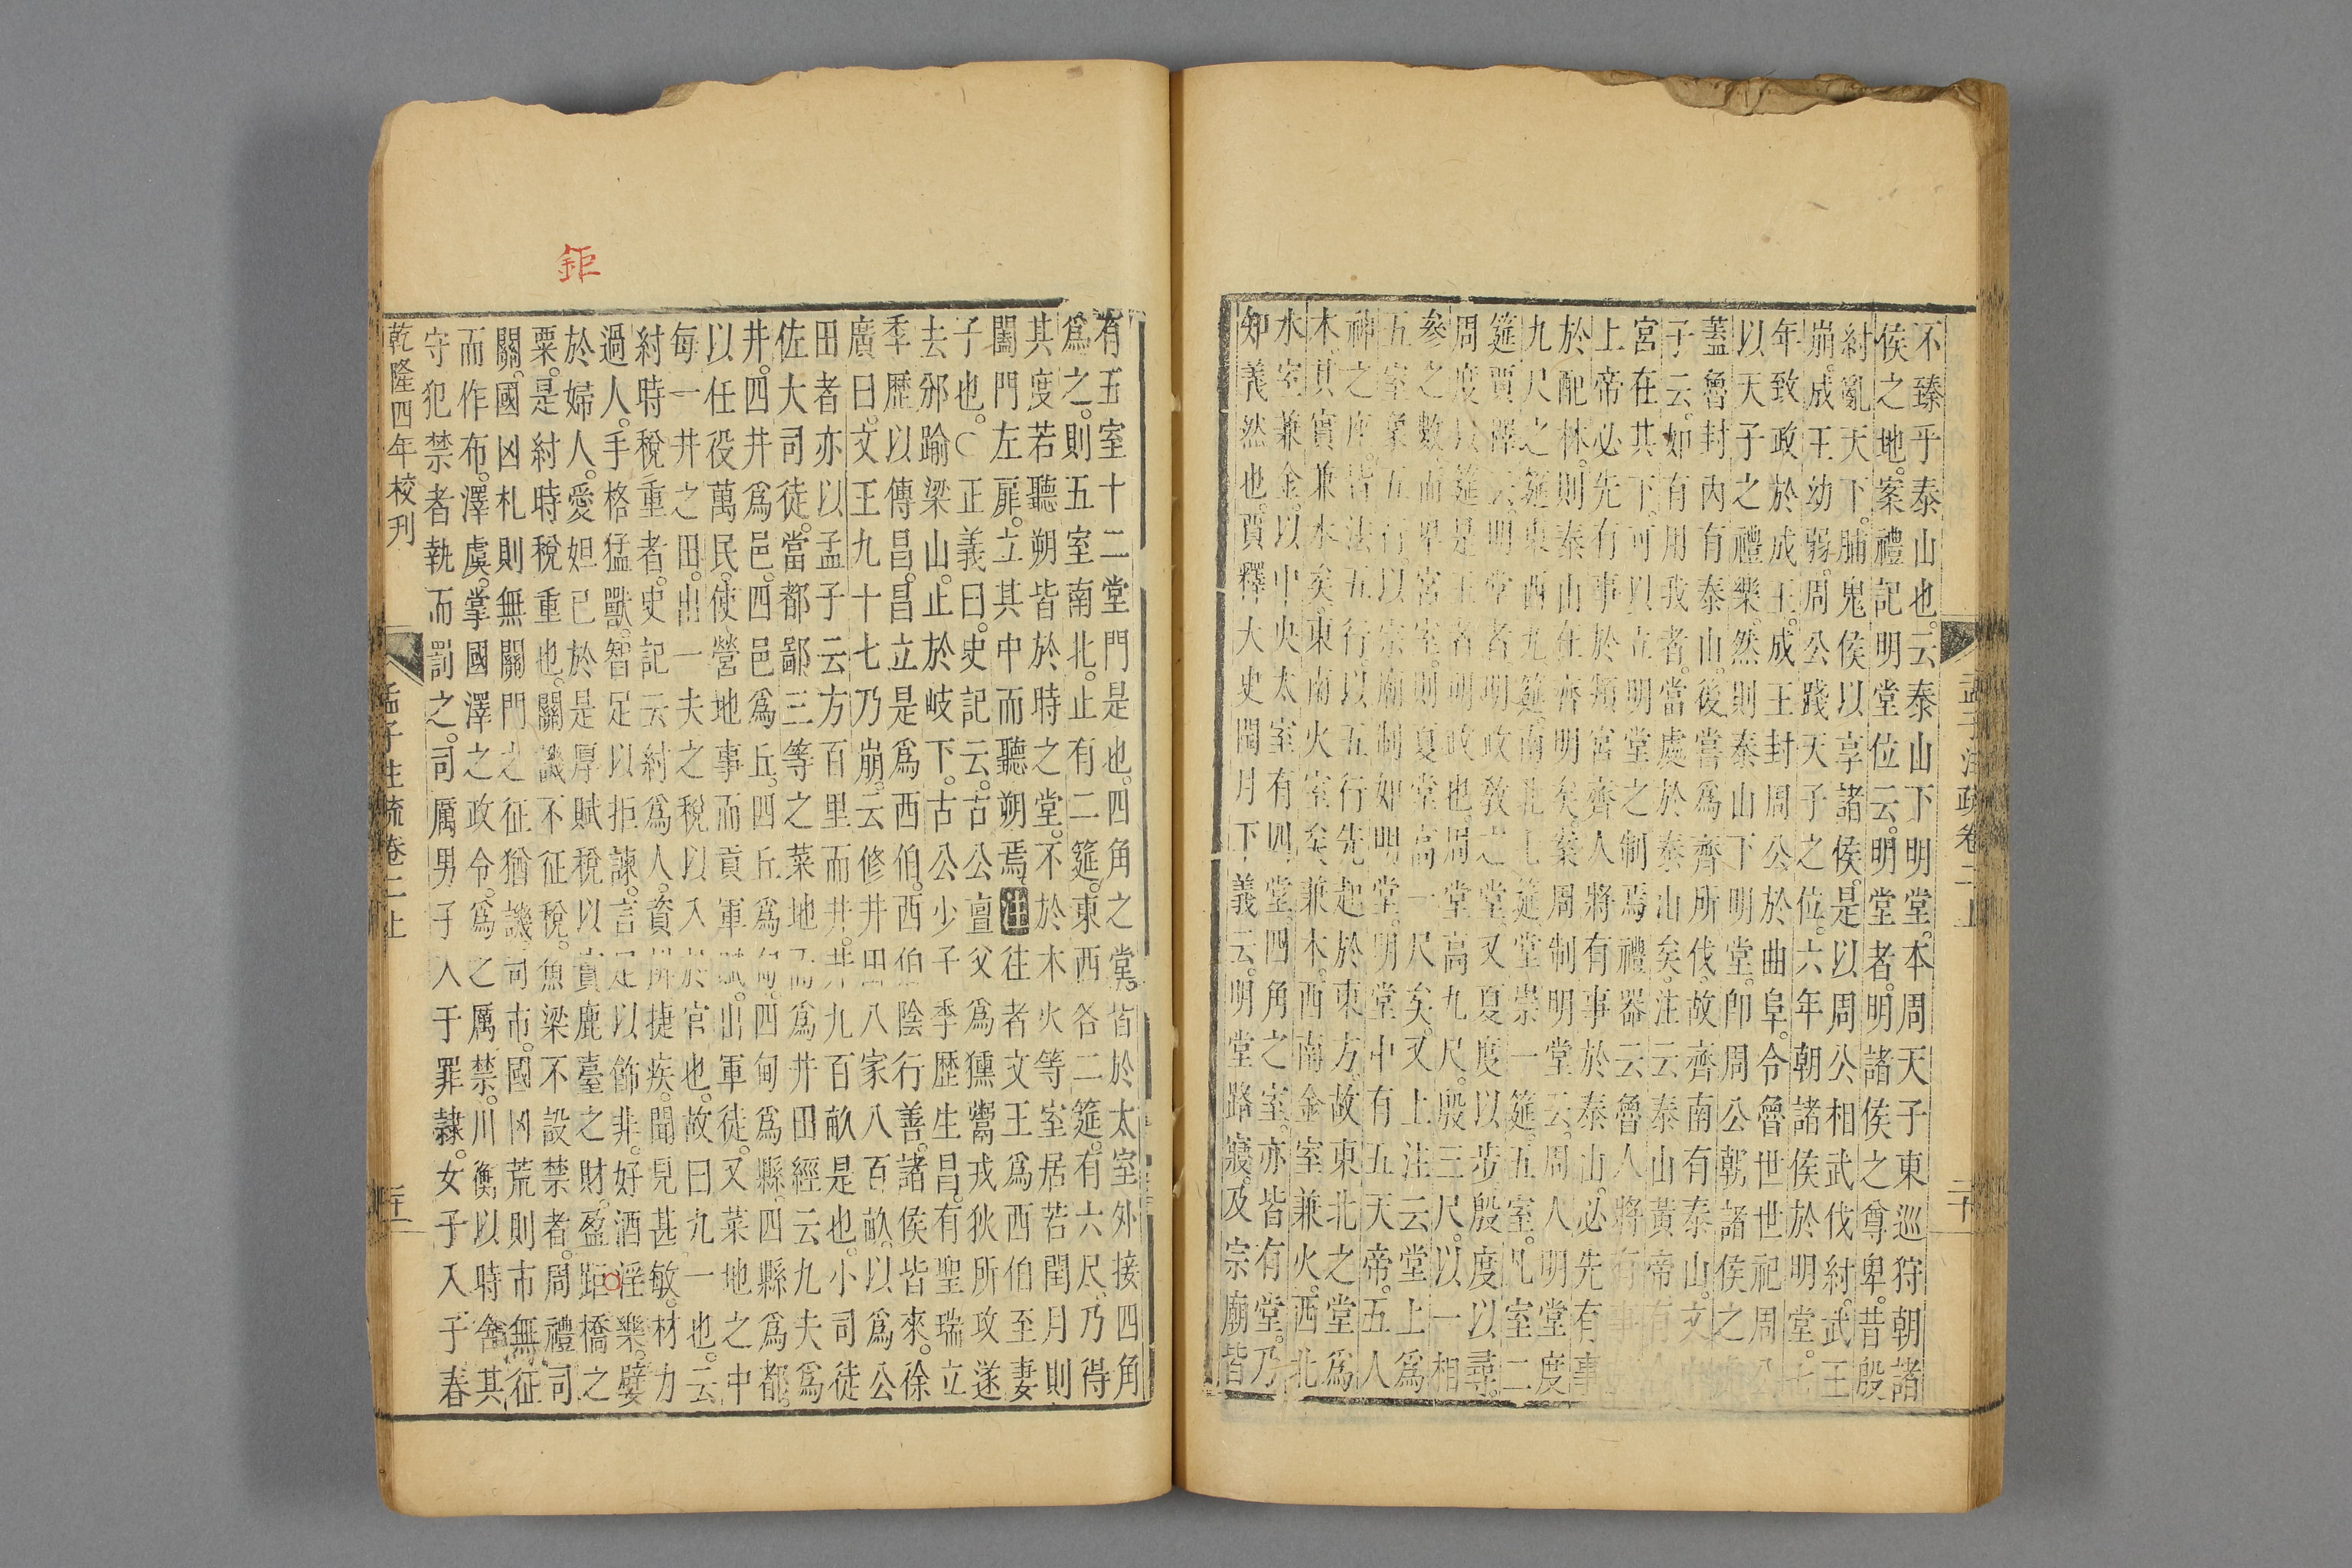 不臻乎泰山也云泰山下明堂本周天子東巡狩朝諸
侯之地案禮記明堂位云明堂者明諸侯之尊卑昔殷
紂亂天下脯鬼侯以享諸侯是以周公相武伐紂武王
崩成王幼弱周公踐天子之位六年朝諸侯於明堂七
年致政於成王成王封周公於曲阜令魯世世祀周公
以天子之禮樂然則泰山下明堂卽周公朝諸侯之
蓋魯封內有泰山後嘗爲齊所伐故齊南有泰山文
子云如有用我者當處於泰山矣注云泰山黃帝有
宮在其下可以立明堂之制焉禮器云魯人將行事
上帝必先有事於頖宮齊人將有事於泰山必先有事
於配林則泰山在齊明矣案周制明堂云周人明堂度
九尺之筵東西九筵南北七筵堂崇一筵五室凡室二
筵賈釋云明堂者明政敎之堂又夏度以步殷度以尋
周度以筵是王者明政也周堂高九尺殷三尺以一相
參之數而卑宮室則夏堂高一尺矣又上注云堂上爲
五室象五行以宗廟制如明堂明堂中有五天帝五人
神之座皆法五行以五行先起於東方故東北之堂爲
木其實兼水矣東南火室矣兼木西南金室兼火西北
水室兼金以中央太室有四堂四角之室亦皆有堂乃
知義然也賈釋大史閏月下義云明堂路寢及宗廟皆
孟子注疏卷二上
二十
有五室十二堂門是也四角之堂皆於太室外接四角
爲之則五室南北止有二筵東西各二筵有六尺乃得
其度若聽朔皆於時之堂不於木火等室居若閏月則
闔門左扉立其中而聽朔焉注往者文王爲西伯至妻
子也○正義曰史記云古公亶父爲獯鬻戎狄所攻遂
去邠踰梁山止於岐下古公少子季歷生昌有聖瑞立
季歷以傳昌昌立是爲西伯西伯陰行善諸侯皆來徐
廣曰文王九十七乃崩云修井田八家八百畝以爲公
田者亦以孟子云方百里而井井九百畝是也小司徒
佐大司徒當都鄙三等之菜地而爲井田經云九夫爲
井四井爲邑四邑爲丘四丘爲甸四甸爲縣四縣爲都
以任役萬民使營地事而貢軍賦出軍徒又菜地之中
每一井之田出一夫之稅以入於官也故曰九一也云
紂時稅重者史記云紂爲人資辨捷疾聞見甚敏材力
過人手格猛獸智足以拒諫言足以飾非好酒淫樂嬖
於婦人愛妲己於是厚賦稅以實鹿臺之財盈距橋之
粟是紂時稅重也關譏不征稅魚梁不設禁者周禮司
關國凶札則無關門之征猶譏司市國凶荒則市無征
而作布澤虞掌國澤之政令爲之厲禁川衡以時舍其
守犯禁者執而罰之司厲男子入于罪隷女子入于舂
鉅
乾隆四年校刊
孟子注疏卷二上
二十一